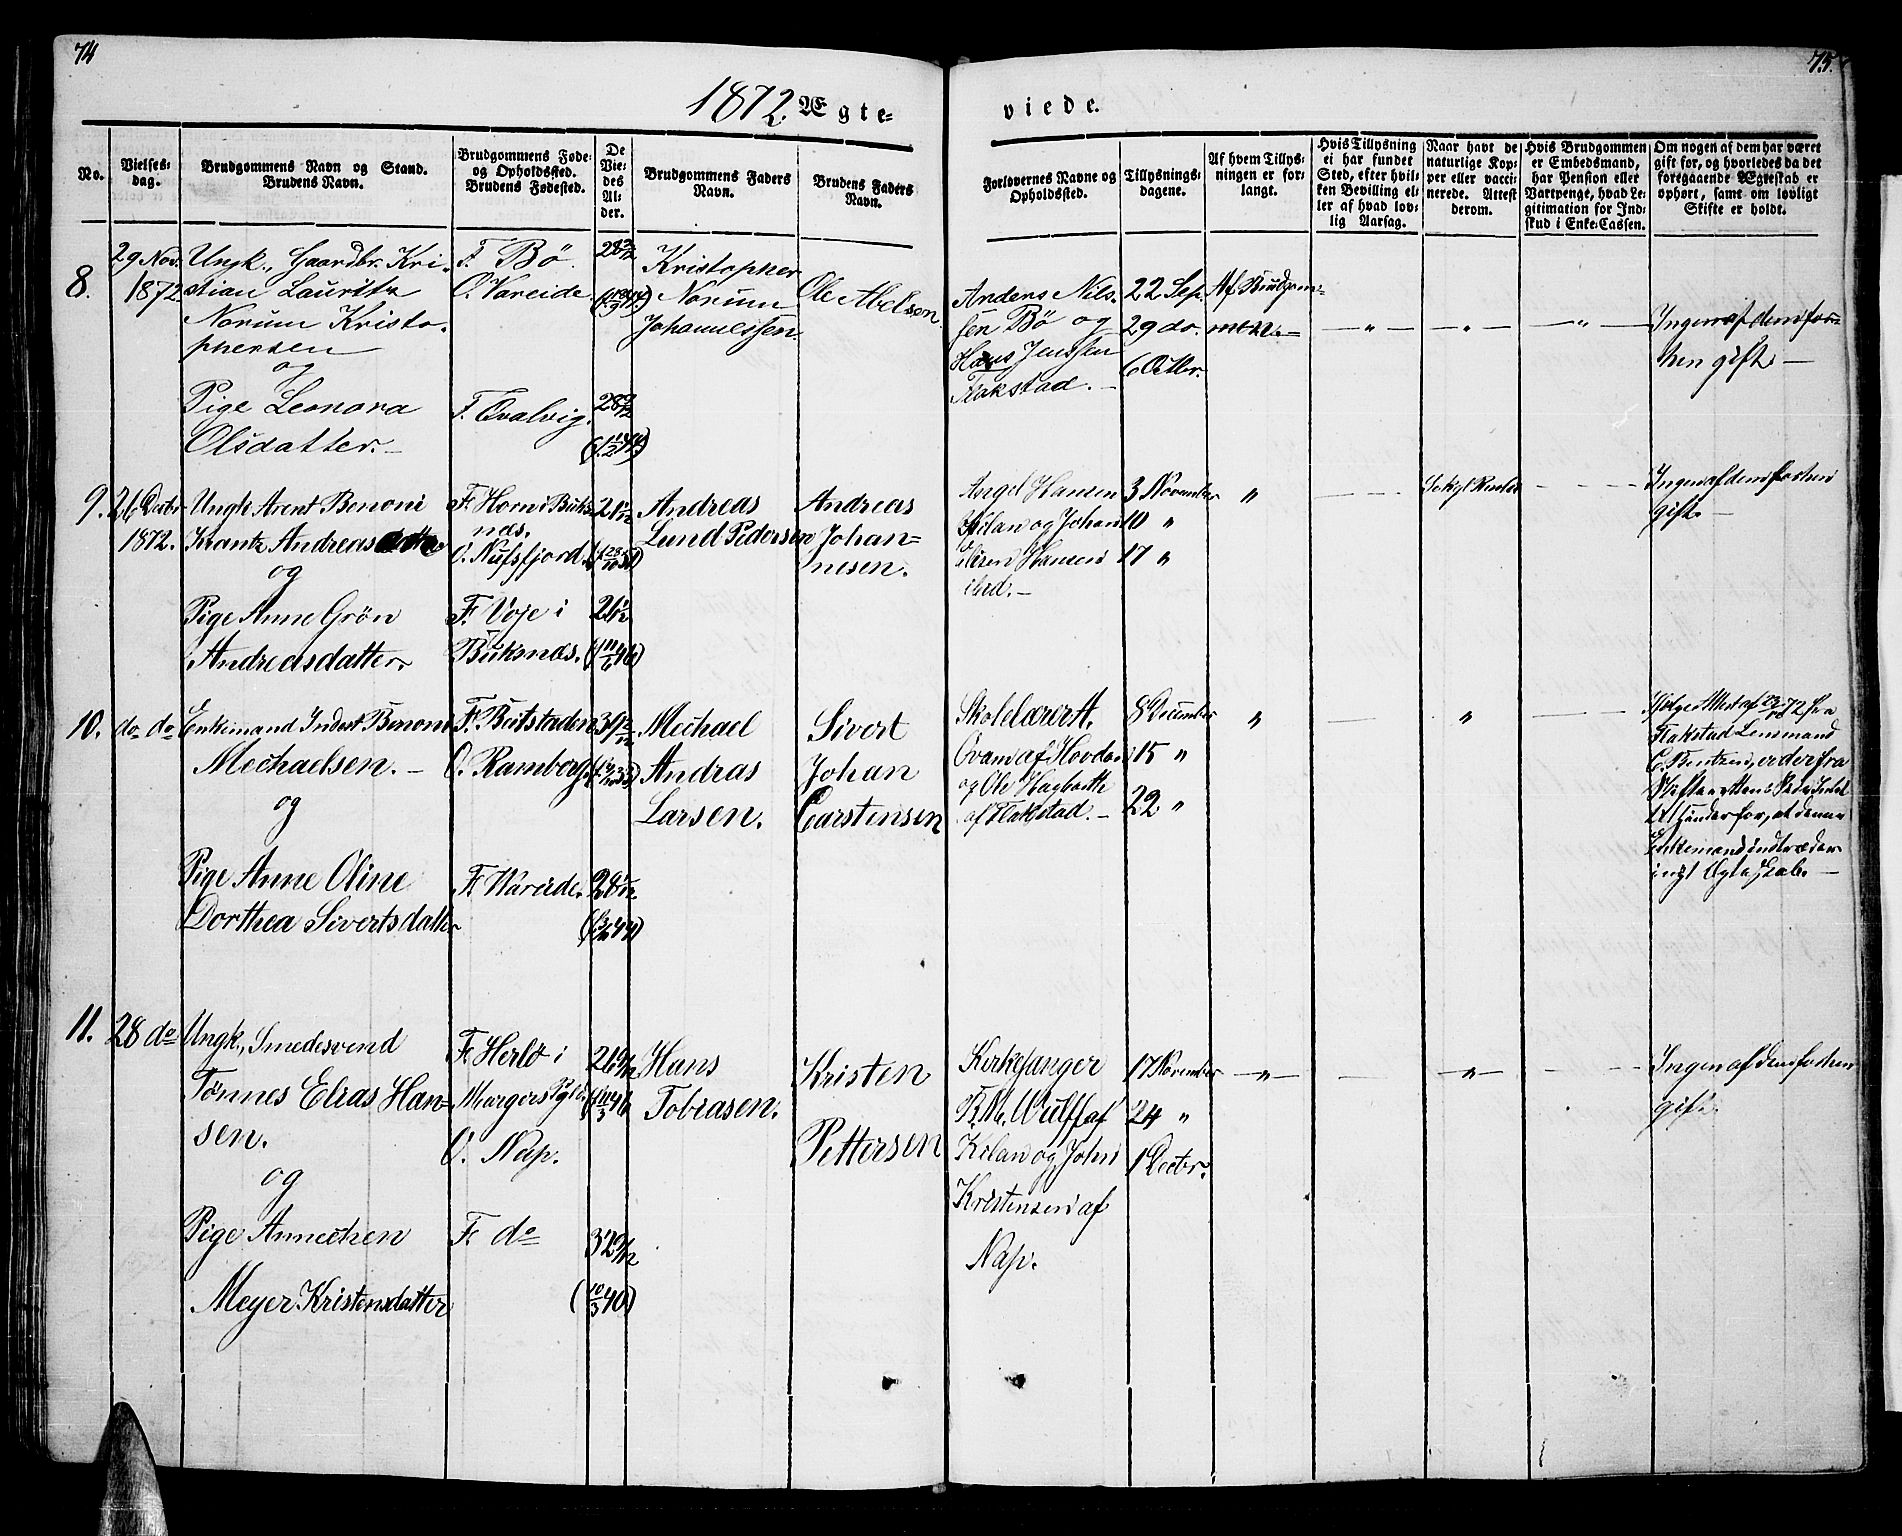 74
75.
1872. Ægte=
viede.
No.
Vielses=
dag.
Brudgommens Navn og Stand.
Brudens Navn.
Brudgommens Føde=
og Opholdssted.
Brudens Fødested.
De
Vie=
des
Al=
der.
Brudgommens Faders
Navn.
Brudens Faders
Navn.
Forlovernes Navne og
Opholdssted.
Tillysnings=
dagene.
Af hvem Tillys=
ningen er for=
langt.
Hvis Tillysning
ei har fundet
Sted, efter hvil=
ken Bevilling el=
ler af hvad lov=
lig Aarsag.
Naar havt de
naturlige Kop=
per eller vacci=
nerede. Attest
derom.
Hvis Brudgommen
er Embedsmand,
har Pension eller
Vartpenge, hvad Le=
gitimation for Ind=
skud i Enke=Cassen.
Om nogen af dem har været
gift før, og hvorledes da det
foregaaende Ægteskab er
ophørt, samt om lovligt
Skifte er holdt.
8.
29 Nov.
1872
Ungk., Gaardbr. Kri-
stian Lauritz
Norum Kristo-
phersen
og
Pige Leonora
Olsdatter.
F. Bø.
O. Vareide.
F. Qvalvig.
Kristopher
Norum
Johannessen.
Ole Abelsen.
Anders Nils-
sen Bø og
Hans Jenssen
Flakstad.
22 Sep.
29 do.
6 Octbr.
Af Brudgom-
men.
— " —
— " —
— " —
Ingen af dem for-
hen gift —
9.
26 Decbr
1872.
Ungk Arent Benoni
Krantz Andreas
og
Pige Anne Grön
Andreasdatter.
F. Horn i Buks-
næs.
O. Nufsfjord.
F. Voje i
Buksnæs.
Andreas
Lund Pedersen
Andreas
Johan=
nesen.
Hansen
og Johan
Hansen
ibid.
3 November
10 "
17 "
"
Ingen af dem forhen
gift. —
10.
do do
Enkemand Indert Benoni
Mechaelsen. —
og
Pige Anne Oline
Dorthea Sivertsdatter
F. Butstaden
O. Ramberg.
F. Wareide.
Mechael
Andras
Larsen.
Sivert
Johan
Carstensen
Skolelærer A.
Qvam af Hovden
og Ole Hagbarth
af Flakstad. —
8 December
15 "
22 "
"
"
Ifølge Attest af 72 fra
Flakstad Lensmand
er derfra
for, at denne
Enkemand indtræder
i nyt Ægteskab. —
11.
28 do
Ungk., Smedesvend
Tønnes Elias Han-
sen.
og
Pige Annechen
Meyer Kristensdatter
F. Herlö i
O. Nap.
F. do
Hans
Tobiasen.
Kristen
Pettersen
Kirkesanger
Wulff af
Kilan og John
Kristensen af
Nap.
17 November
24 "
1 Decbr.
"
"
Ingen af dem forhen
gift.